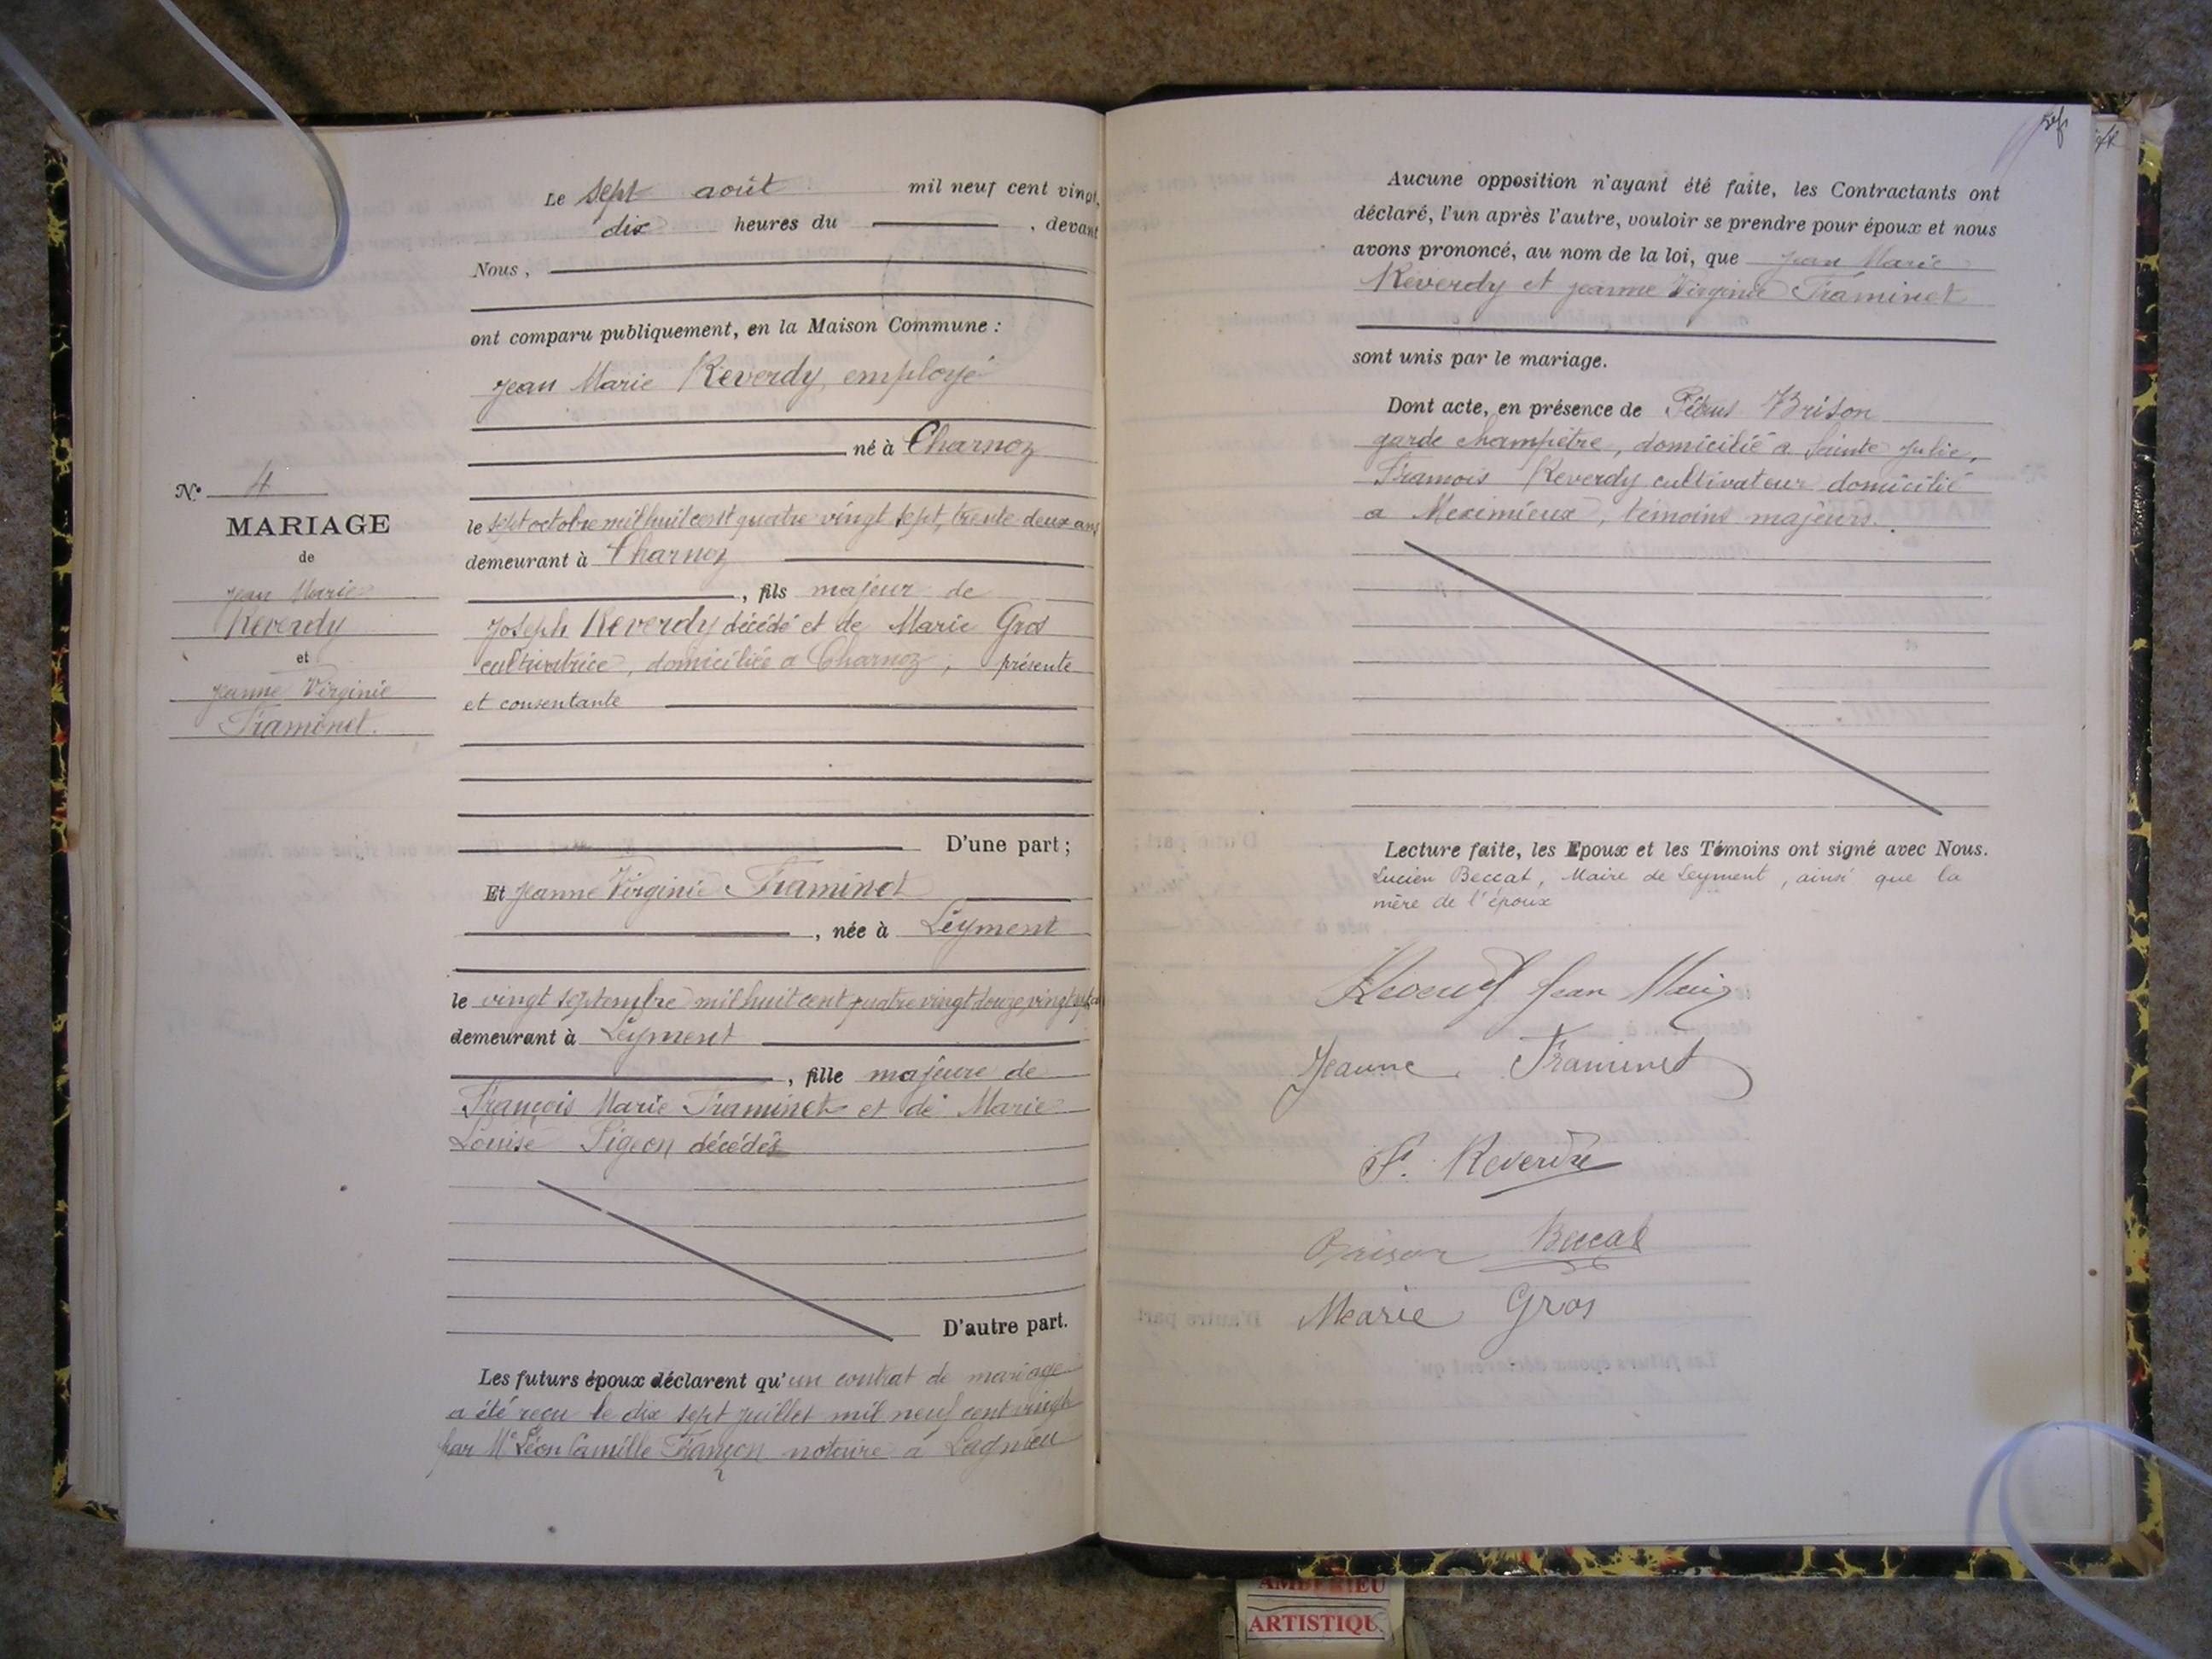 Le sept août mil neuf cent vingt,
dix heures du , devant
Nous,
ont comparu publiquement, en la Maison Commune :
Jean Marie Reverdy, employé
né à Charnoz
le sept octobre mil huit cent quatre vingt sept, trente deux ans
demeurant à Charnoz
, fils majeur de
Joseph Reverdy décédé et de Marie Gros
cultivatrice, domiciliée a Charnoz, présente
et consentante
D'une part ;
Et Jeanne Virginie Traminet
, née à Leyment
le vingt septembre mil huit cent quatre vingt douze, vingt sept ans
demeurant à Leyment
, fille majeure de
François Marie Traminet et de Marie
Louise Pigeon décédés
D'autre part.
Les futurs époux déclarent qu'un contrat de mariage
a été reçu le dix sept juillet mil neuf cent vingt
par Me Léon Camille Françon notaire à Lagnieu
N° 4
MARIAGE
de
Jean Marie
Reverdy
et
Jeanne Virginie
Traminet.
Aucune opposition n'ayant été faite, les Contractants ont
déclaré, l'un après l'autre, vouloir se prendre pour époux et nous
avons prononcé, au nom de la loi, que Jean Marie
Reverdy et Jeanne Virginie Traminet
sont unis par le mariage.
Dont acte, en présence de Brison
garde champêtre, domicilié a Sainte Julie,
Reverdy cultivateur domicilié
a Meximieux, témoins majeurs.
Lecture faite, les Epoux et les Témoins ont signé avec Nous.
Lucien Beccat, Maire de Leyment, ainsi que la
mère de l'époux
Reverdy Jean Marie
Jeanne Traminet
F. Reverdy
Brison Beccat
Marie Gros
AMBERIEU
ARTISTIQU